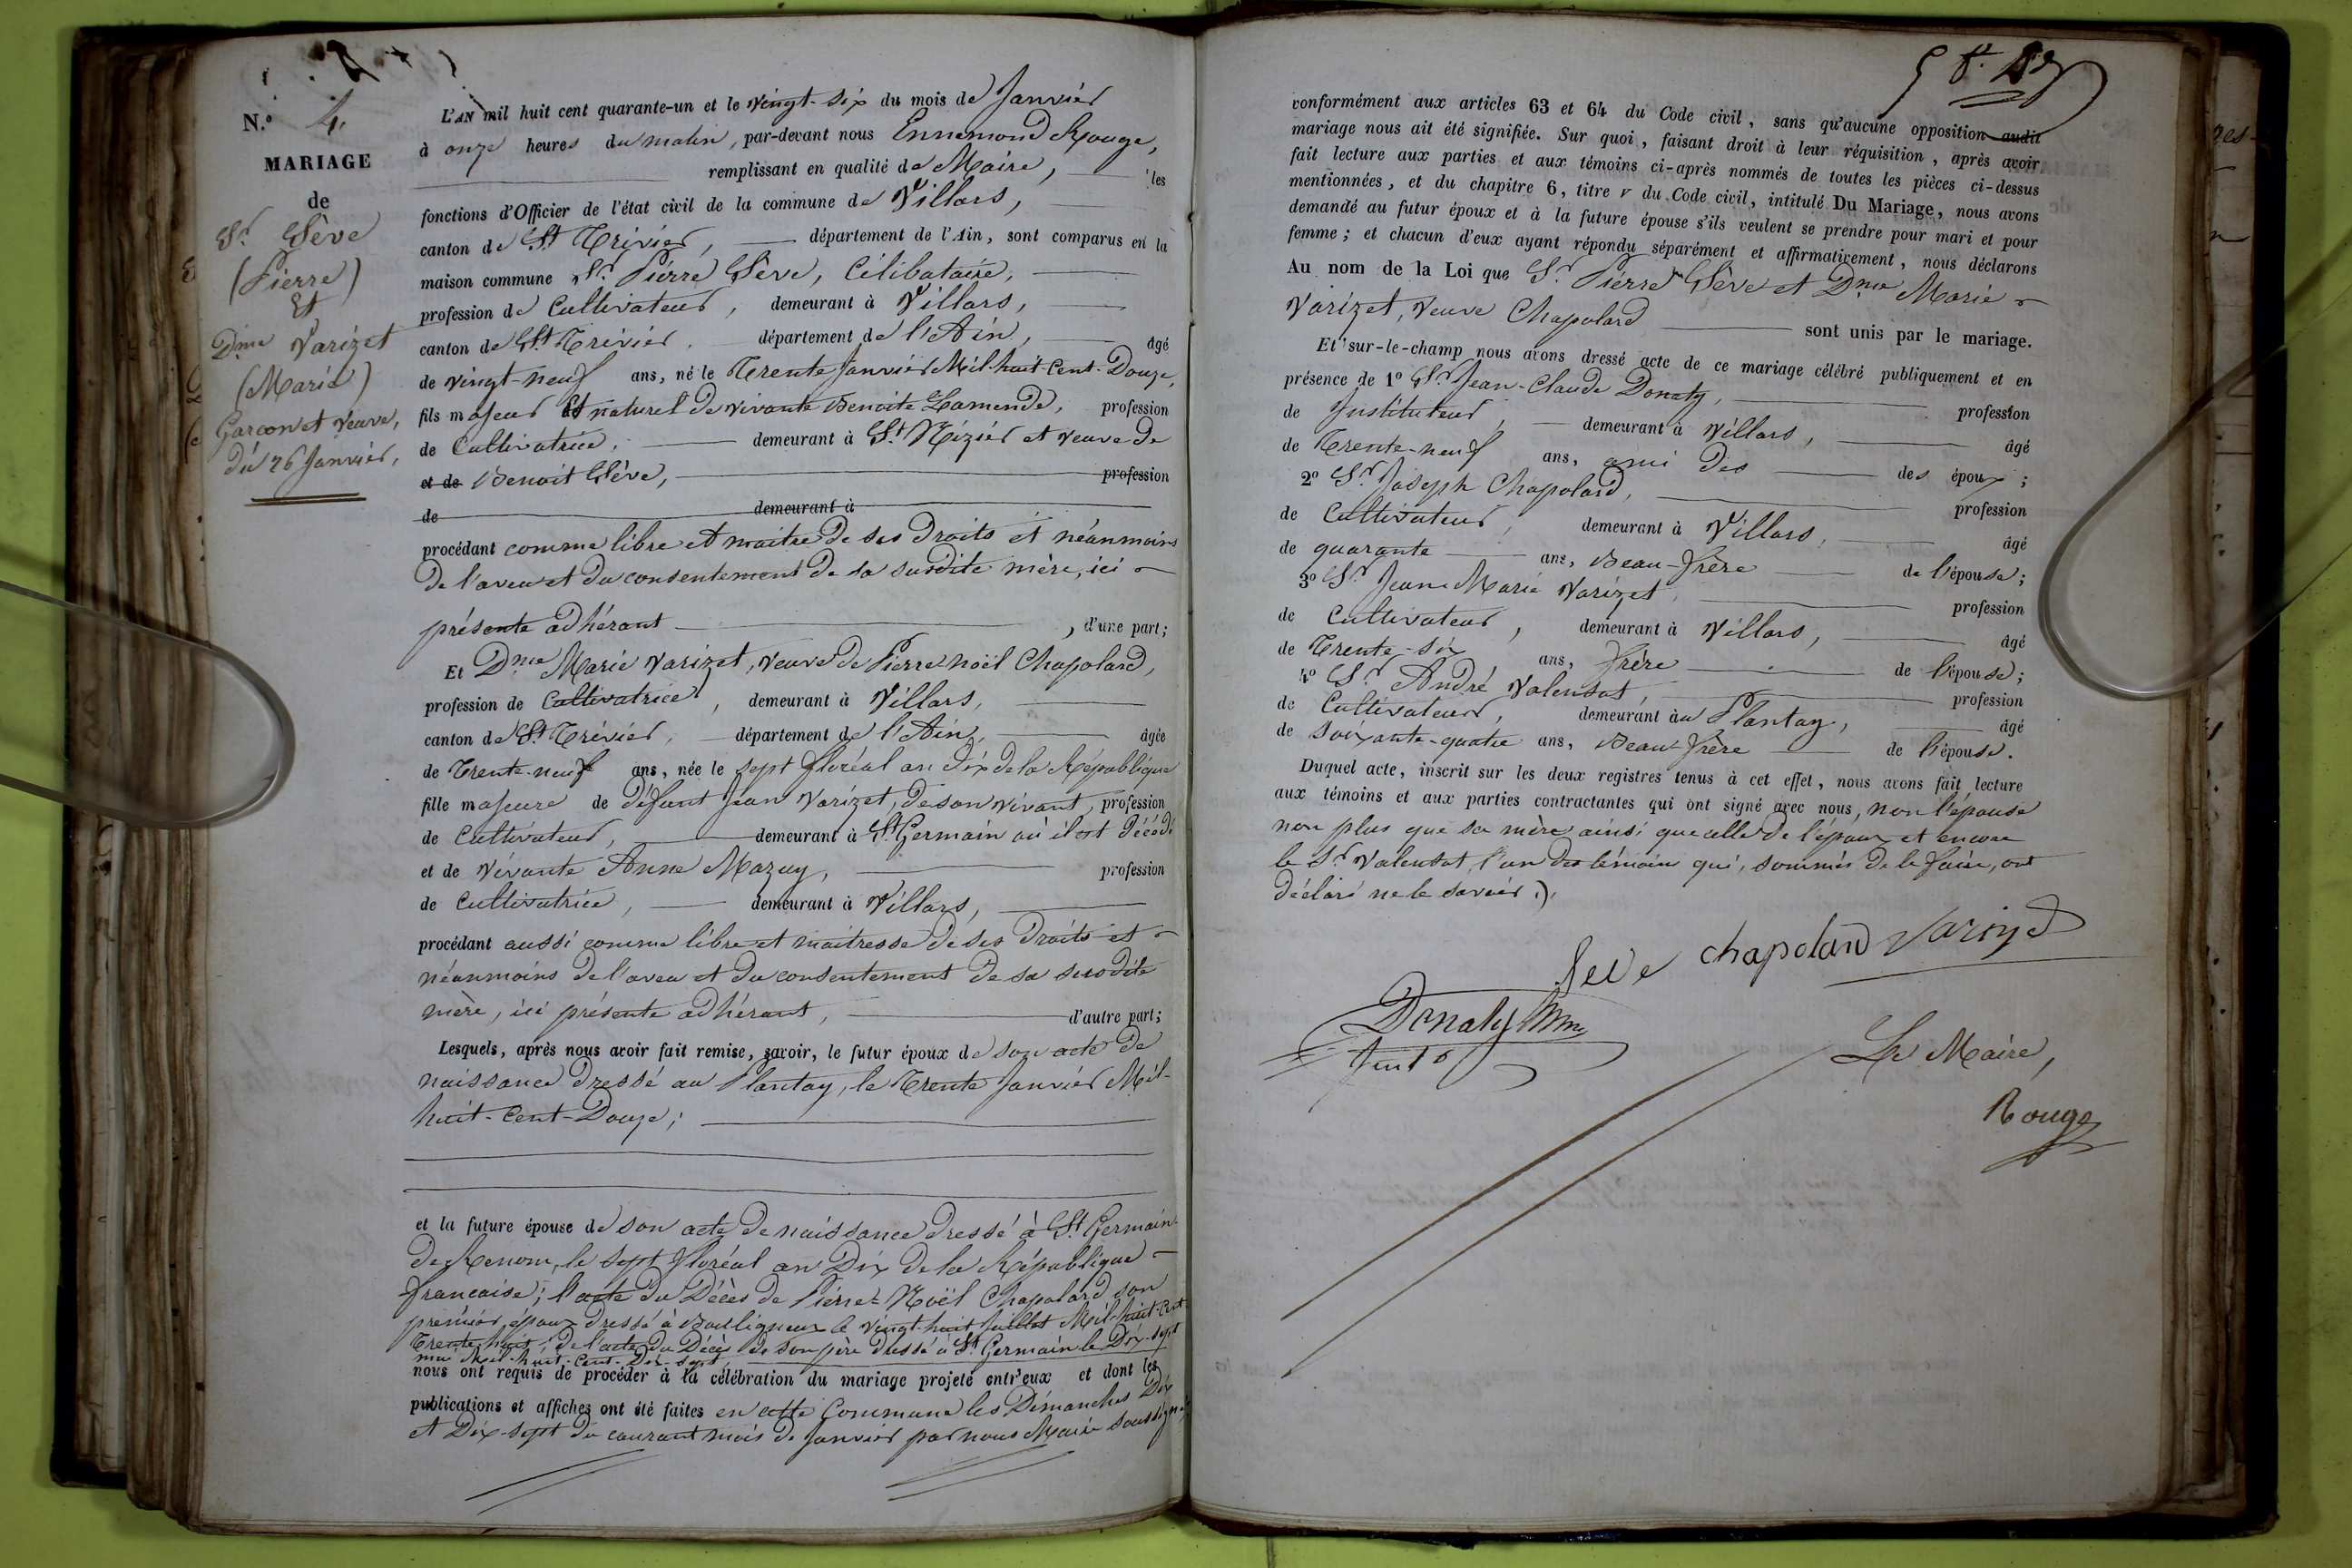 N.º 4.
MARIAGE
de
Sr. Sève
(Pierre)
Et
Dme Varizet
(Marie)
Garçon et veuve,
du 26 Janvier,
L'AN mil huit cent quarante-un et le vingt-six du mois de Janvier
à onze heures du matin, par-devant nous Ennemond Rouge,
remplissant en qualité de Maire, les
fonctions d'Officier de l'état civil de la commune de Villars,
canton de St Trivier, département de l'Ain, sont comparus en la
maison commune Sr. Pierre Sève, Célibataire,
profession de Cultivateur, demeurant à Villars,
canton de St. Trivier, département de l'Ain, âgé
de vingt-neuf ans, né le Trente Janvier Mil-huit-Cent-Douze,
fils majeur et naturel de vivante Benoite Lamende, profession
de Cultivatrice, demeurant à St. Nizier et veuve de
et de Benoit Sève, profession
de demeurant à
procédant comme libre et maitre de ses droits et néanmoins
de l'aveu et du consentement de sa susdite mère, ici
présente adhérant, d'une part;
Et Dme Marie Varizet, veuve de Pierre noël Chapolard,
profession de Cultivatrice, demeurant à Villars,
canton de St. Trivier, département de l'Ain, âgée
de Trente-neuf ans, née le sept floréal an dix de la République
fille majeure de défunt Jean Varizet, de son vivant, profession
de Cultivateur, demeurant à St Germain où il est décédé
et de vivante Anne Mazuy, profession
de Cultivatrice, demeurant à Villars,
procédant aussi comme libre et maitresse de ses droits et
néanmoins de l'aveu et du consentement de sa susdite
mère, ici présente adhérant, d'autre part;
Lesquels, après nous avoir fait remise, savoir, le futur époux de son acte de
naissance dressé au Plantay, le Trente Janvier Mil-
huit-Cent-Douze;
et la future épouse de son acte de naissance dressé à St Germain
de Renom, le sept floréal an Dix de la République
francaise; l'acte du Décès de Pierre-Noël Chapolard son
premier époux dressé à Bouligneux le vingt-huit Juillet Mil-huit-Cent-
Trente-huit; de l'acte du Décès de son père dressé à St Germain le Dix-sept
mai Mil-huit-Cent-Dix-sept,
nous ont requis de procéder à la célébration du mariage projeté entr'eux et dont les
publications et affiches ont été faites en cette Commune les Dimanches Dix
et Dix-sept du courant mois de Janvier par nous Maire soussigné
conformément aux articles 63 et 64 du Code civil, sans qu'aucune opposition audit
mariage nous ait été signifiée. Sur quoi, faisant droit à leur réquisition, après avoir
fait lecture aux parties et aux témoins ci-après nommés de toutes les pièces ci-dessus
mentionnées, et du chapitre 6, titre V du Code civil, intitulé Du Mariage, nous avons
demandé au futur époux et à la future épouse s'ils veulent se prendre pour mari et pour
femme; et chacun d'eux ayant répondu séparément et affirmativement, nous déclarons
Au nom de la Loi que Sr. Pierre Sève et Dme Marie
Varizet, veuve Chapolard sont unis par le mariage.
Et sur-le-champ nous avons dressé acte de ce mariage célébré publiquement et en
présence de 1º Sr. Jean-Claude Donaty, profession
de Instituteur, demeurant à Villars, âgé
de Trente-neuf ans, ami des des époux;
2º Sr. Joseph Chapolard, profession
de Cultivateur, demeurant à Villars, âgé
de quarante ans, Beau-frère de l'épouse;
3º Sr. Jean Marie Varizet, profession
de Cultivateur, demeurant à Villars, âgé
de Trente-six ans, frère de l'épouse;
4º Sr. André Valensot, profession
de Cultivateur, demeurant au Plantay, âgé
de soixante-quatre ans, Beau-frère de l'épouse.
Duquel acte, inscrit sur les deux registres tenus à cet effet, nous avons fait lecture
aux témoins et aux parties contractantes qui ont signé avec nous, non l'épouse
non plus que sa mère ainsi que celle de l'époux et encore
le Sr. Valensot l'un des témoins qui, sommés de le faire, ont
déclaré ne le savoir.
Seve chapolard Varizet
Donaty
Le Maire,
Rouge